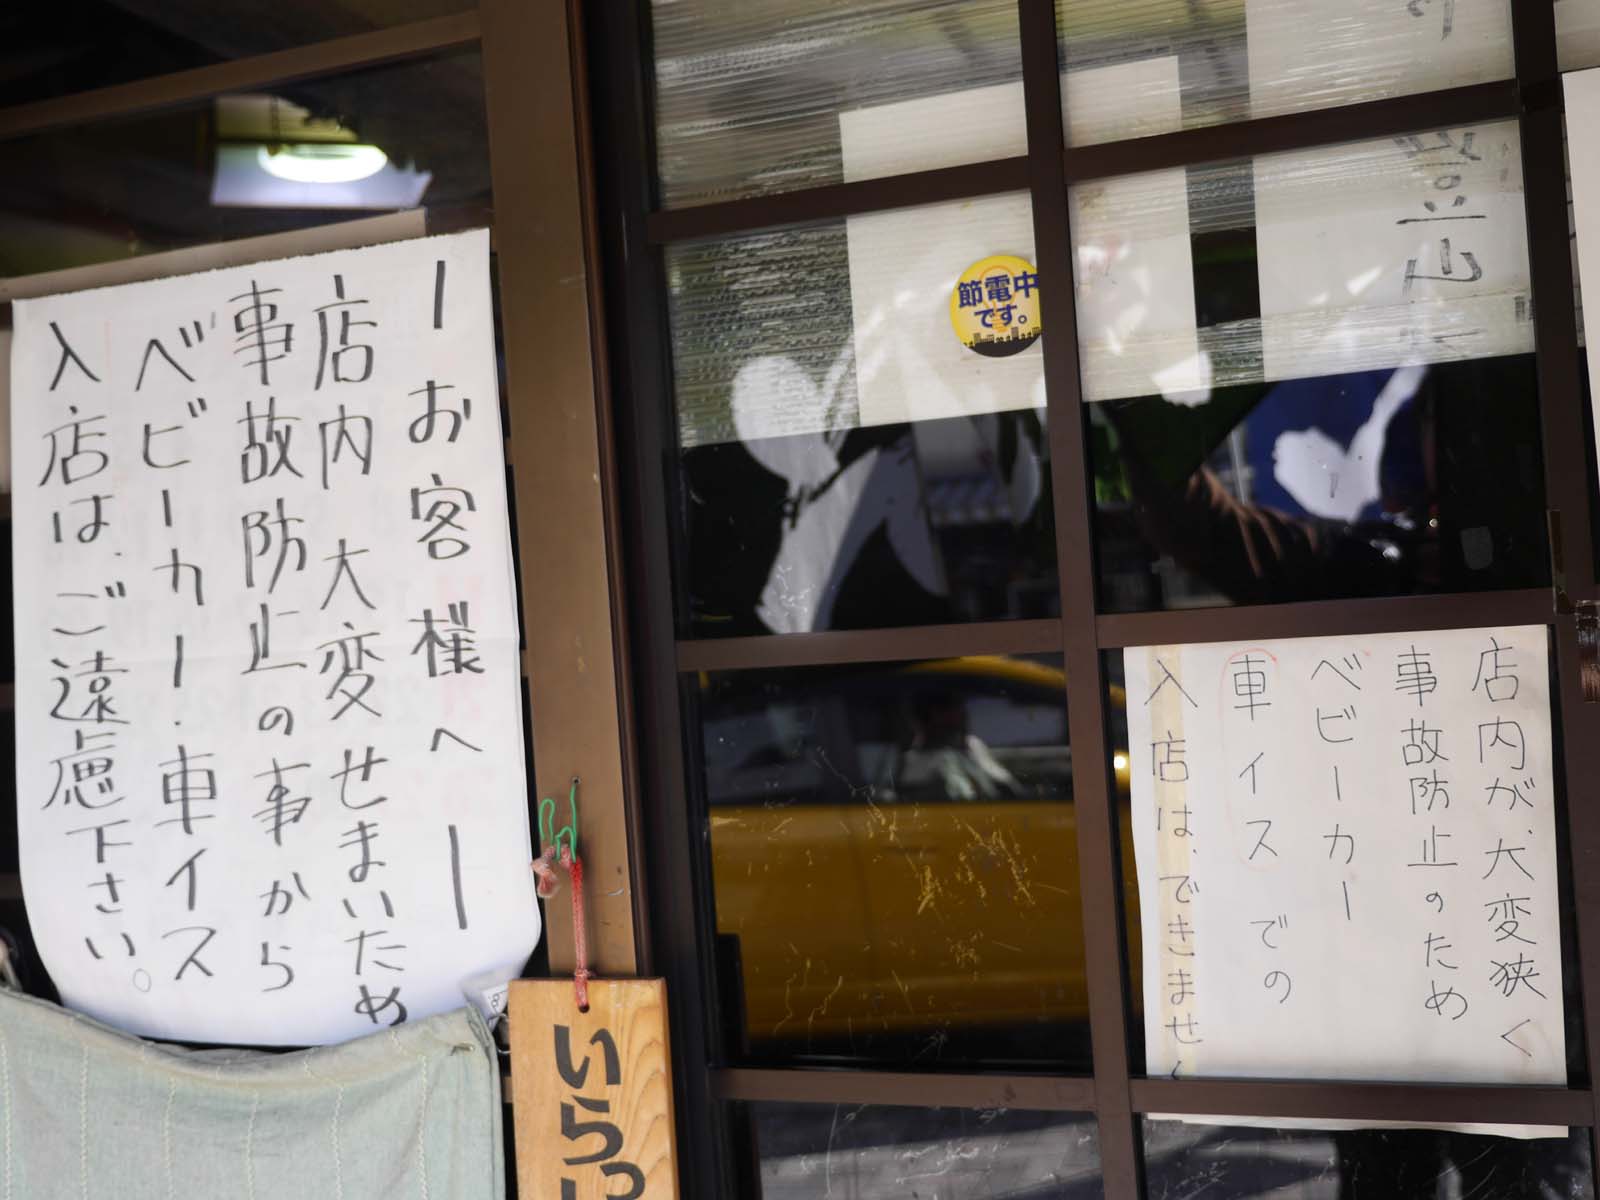 ーお客様へー
店内大変せまいため
事故防止の事から
ベビーカー・車イス
入店は、ご遠慮下さい。
いらっ
節電中
です。
店内が、大変狭く
事故防止のため
ベビーカー
車イスでの
入店は、できません